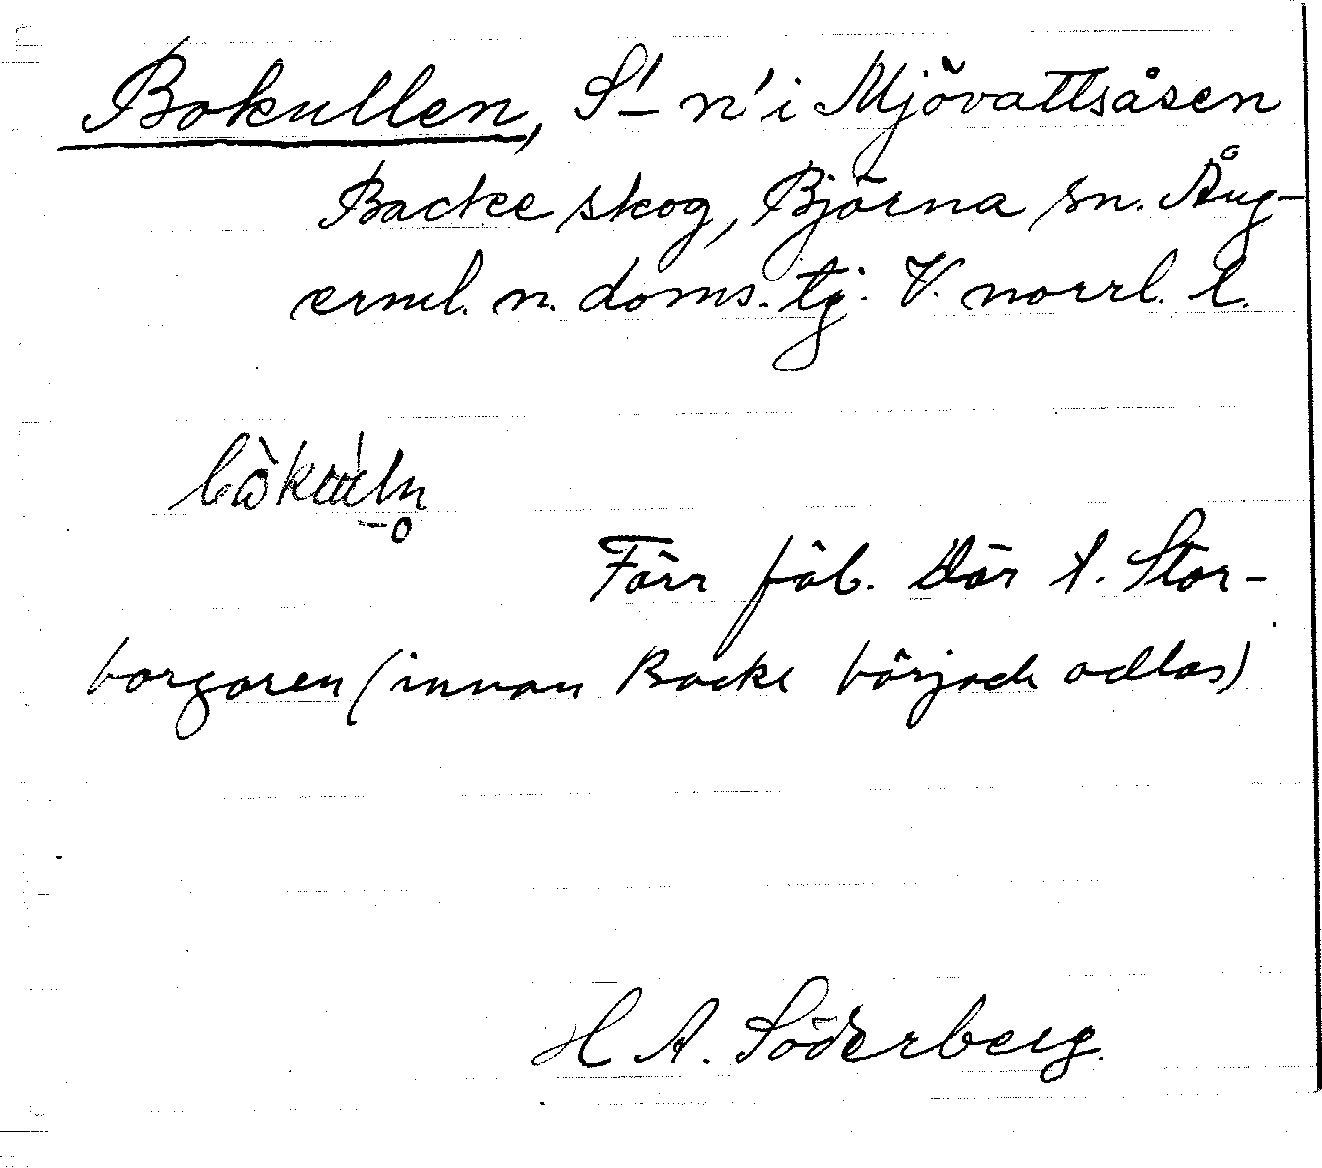 Bokullen, S'–n' i Mjövattsåsen
Backe skog, Björna sn. Ång-
erml. n. doms. tj. V. norrl. l.
Förr fäb. Där t. Stor-
borgaren (innan Backe började odlas)
H A. Söderberg.